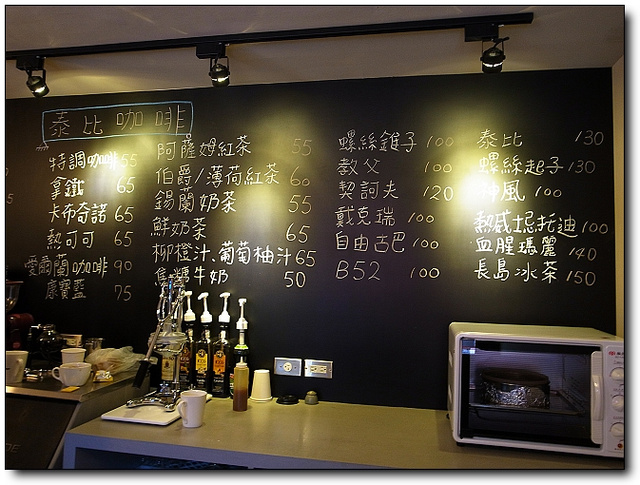 泰比咖啡
特調咖啡 55
拿鐵 65
卡布奇諾 65
熱可可 65
愛爾蘭咖啡 90
康寶藍 75
阿薩姆紅茶 55
伯爵/薄荷紅茶 60
錫蘭奶茶 55
鮮奶茶 65
柳橙汁、葡萄柚汁 65
焦糖牛奶 50
螺絲錐子 100
教父 100
契訶夫 120
戴克瑞 100
自由古巴 100
B52 100
泰比 130
螺絲起子 130
神風 100
熱威士忌托迪 100
血腥瑪麗 140
長島冰茶 150